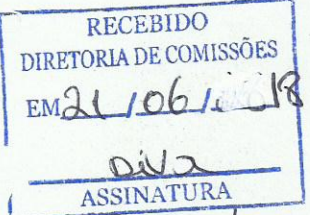 RECEBIDO
DIRETORIA DE COMISSÕES
EM 21/06/18
Diva
ASSINATURA